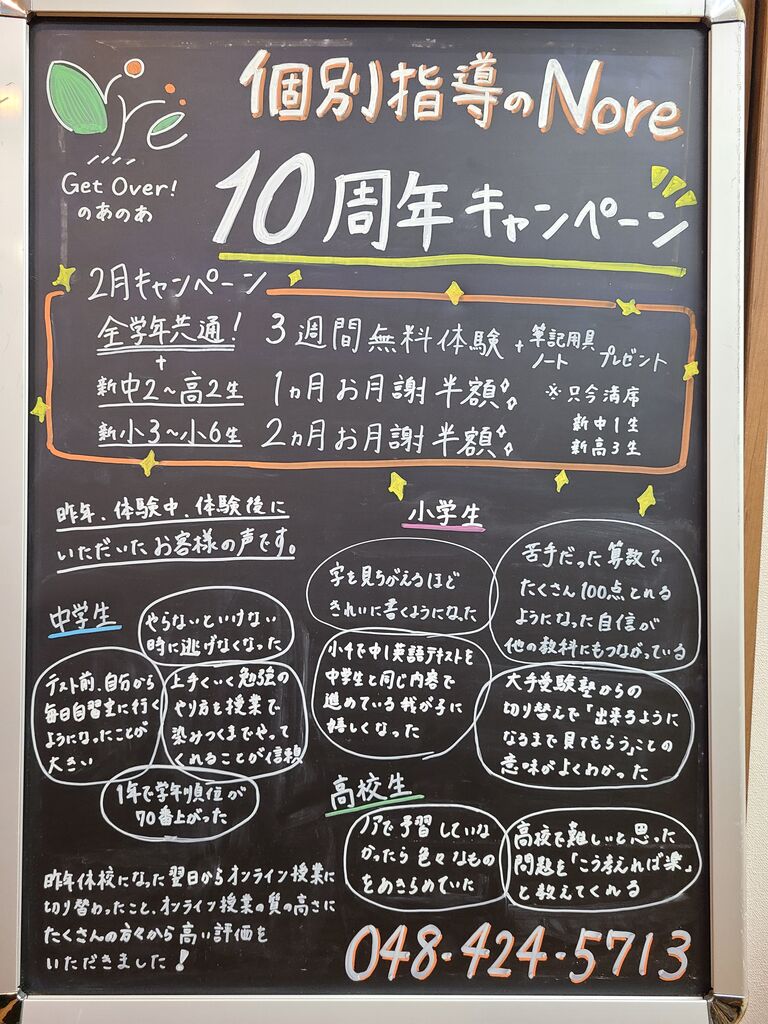 nre
個別指導のNore
Get Over!
のあのあ
10周年キャンペーン
2月キャンペーン
全学年共通! 3週間無料体験 + 筆記用具 ノート プレゼント
+
新中2~高2生 1ヵ月お月謝半額 ※只今満席
新中1生
新小3~小6生 2ヵ月お月謝半額
新高3生
昨年、体験中、体験後に
いただいたお客様の声です。
中学生
やらないといけない
時に逃げなくなった
テスト前、自分から
毎日自習室に行く
ようになったことが
大きい
上手くいく勉強の
やり方を授業で
染みつくまでやって
くれることが信頼
1年で学年順位が
70番上がった
小学生
字を見ちがえるほど
きれいに書くようになった
苦手だった算数で
たくさん100点とれる
ようになった自信が
他の教科にもつながっている
小4で中1英語テキストを
中学生と同じ内容で
進めている我が子に
嬉しくなった
大手受験塾からの
切り替えで「出来るように
なるまで見てもらう」ことの
意味がよくわかった
高校生
ノアで予習していな
かったら色々なもの
をあきらめていた
高校で難しいと思った
問題を「こう考えれば楽」
と教えてくれる
昨年休校になった翌日からオンライン授業に
切り替わったこと、オンライン授業の質の高さに
たくさんの方々から高い評価を
いただきました!
048-424-5713